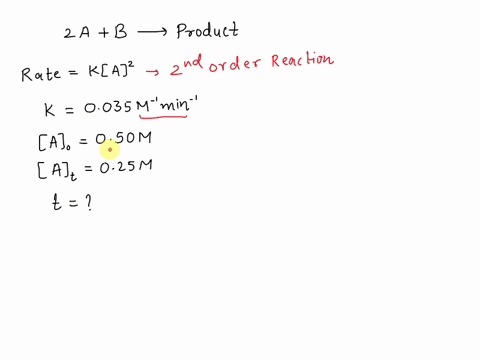 2A + B ⟶ Product
Rate = K[A]² → 2nd order Reaction
K = 0.035 M⁻¹ min⁻¹
[A]₀ = 0.50 M
[A]ₜ = 0.25 M
t = ?